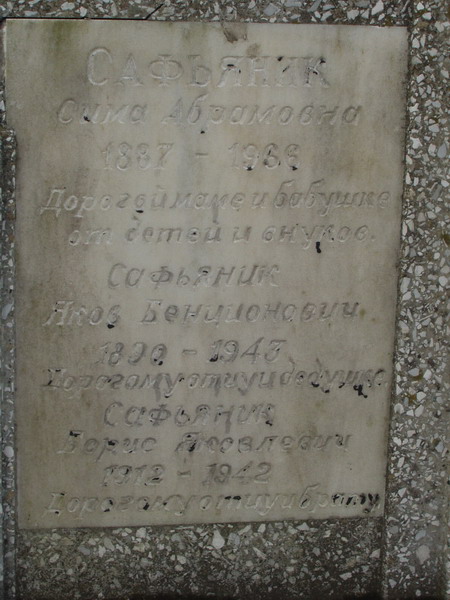 САФЬЯНИК
Сима Абрамовна
1887 - 1966
Дорогой маме и бабушке
от детей и внуков.
САФЬЯНИК
Яков Бенционович
1890 - 1943
Дорогому отцу и дедушке
САФЬЯНИК
Борис Яковлевич
1912 - 1942
Дорогому отцу и брату